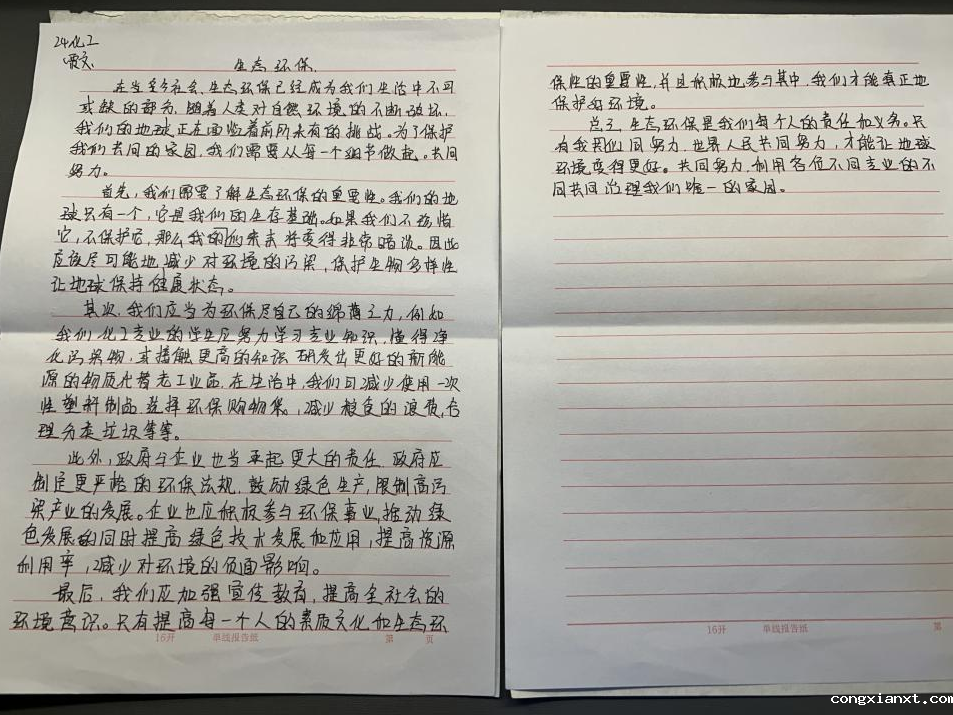 24化工
生态环保.
在当今社会、生态环保已经成为我们生活中不可
或缺的部分.随着人类对自然环境的不断破坏.
我们的地球正在面临着前所未有的挑战。为了保护
我们共同的家园.我们需要从每一个细节做起。共同
努力。
首先,我们需要了解生态环保的重要性。我们的地
球只有一个,它是我们的生存基础。如果我们不珍惜
它,不保护它,那么我的们未来将变得非常暗淡。因此
应该尽可能地减少对环境的污染,保护生物多样性
让地球保持健康状态。
其次.我们应当为环保尽自己的绵薄之力,例如
我们化工专业的学生应努力学习专业知识.懂得净
化污染物.或接触更高的知识研发出更好的新能
源的物质代替老工业品.在生活中,我们可减少使用一次
性塑料制品.选择环保购物袋,减少粮食的浪费,合
理分类垃圾等等。
此外,政府与企业也当承起更大的责任.政府应
制定更严格的环保法规.鼓励绿色生产,限制高污
染产业的发展。企业也应积极参与环保事业,推动绿
色发展的同时提高绿色技术发展和应用,提高资源
利用率,减少对环境的负面影响。
最后,我们应加强宣传教育,提高全社会的
环境意识。只有提高每一个人的素质文化和生态环
16开 单线报告纸 第 页
保性的重要性,并且积极地参与其中.我们才能真正地
保护好环境。
总之.生态环保是我们每个人的责任和义务。只
有我们同努力.世界人民共同努力,才能让地球
环境变得更好。共同努力.利用各位不同专业的不
同共同治理我们唯一的家园。
16开 单线报告纸 第
congxianxt.com